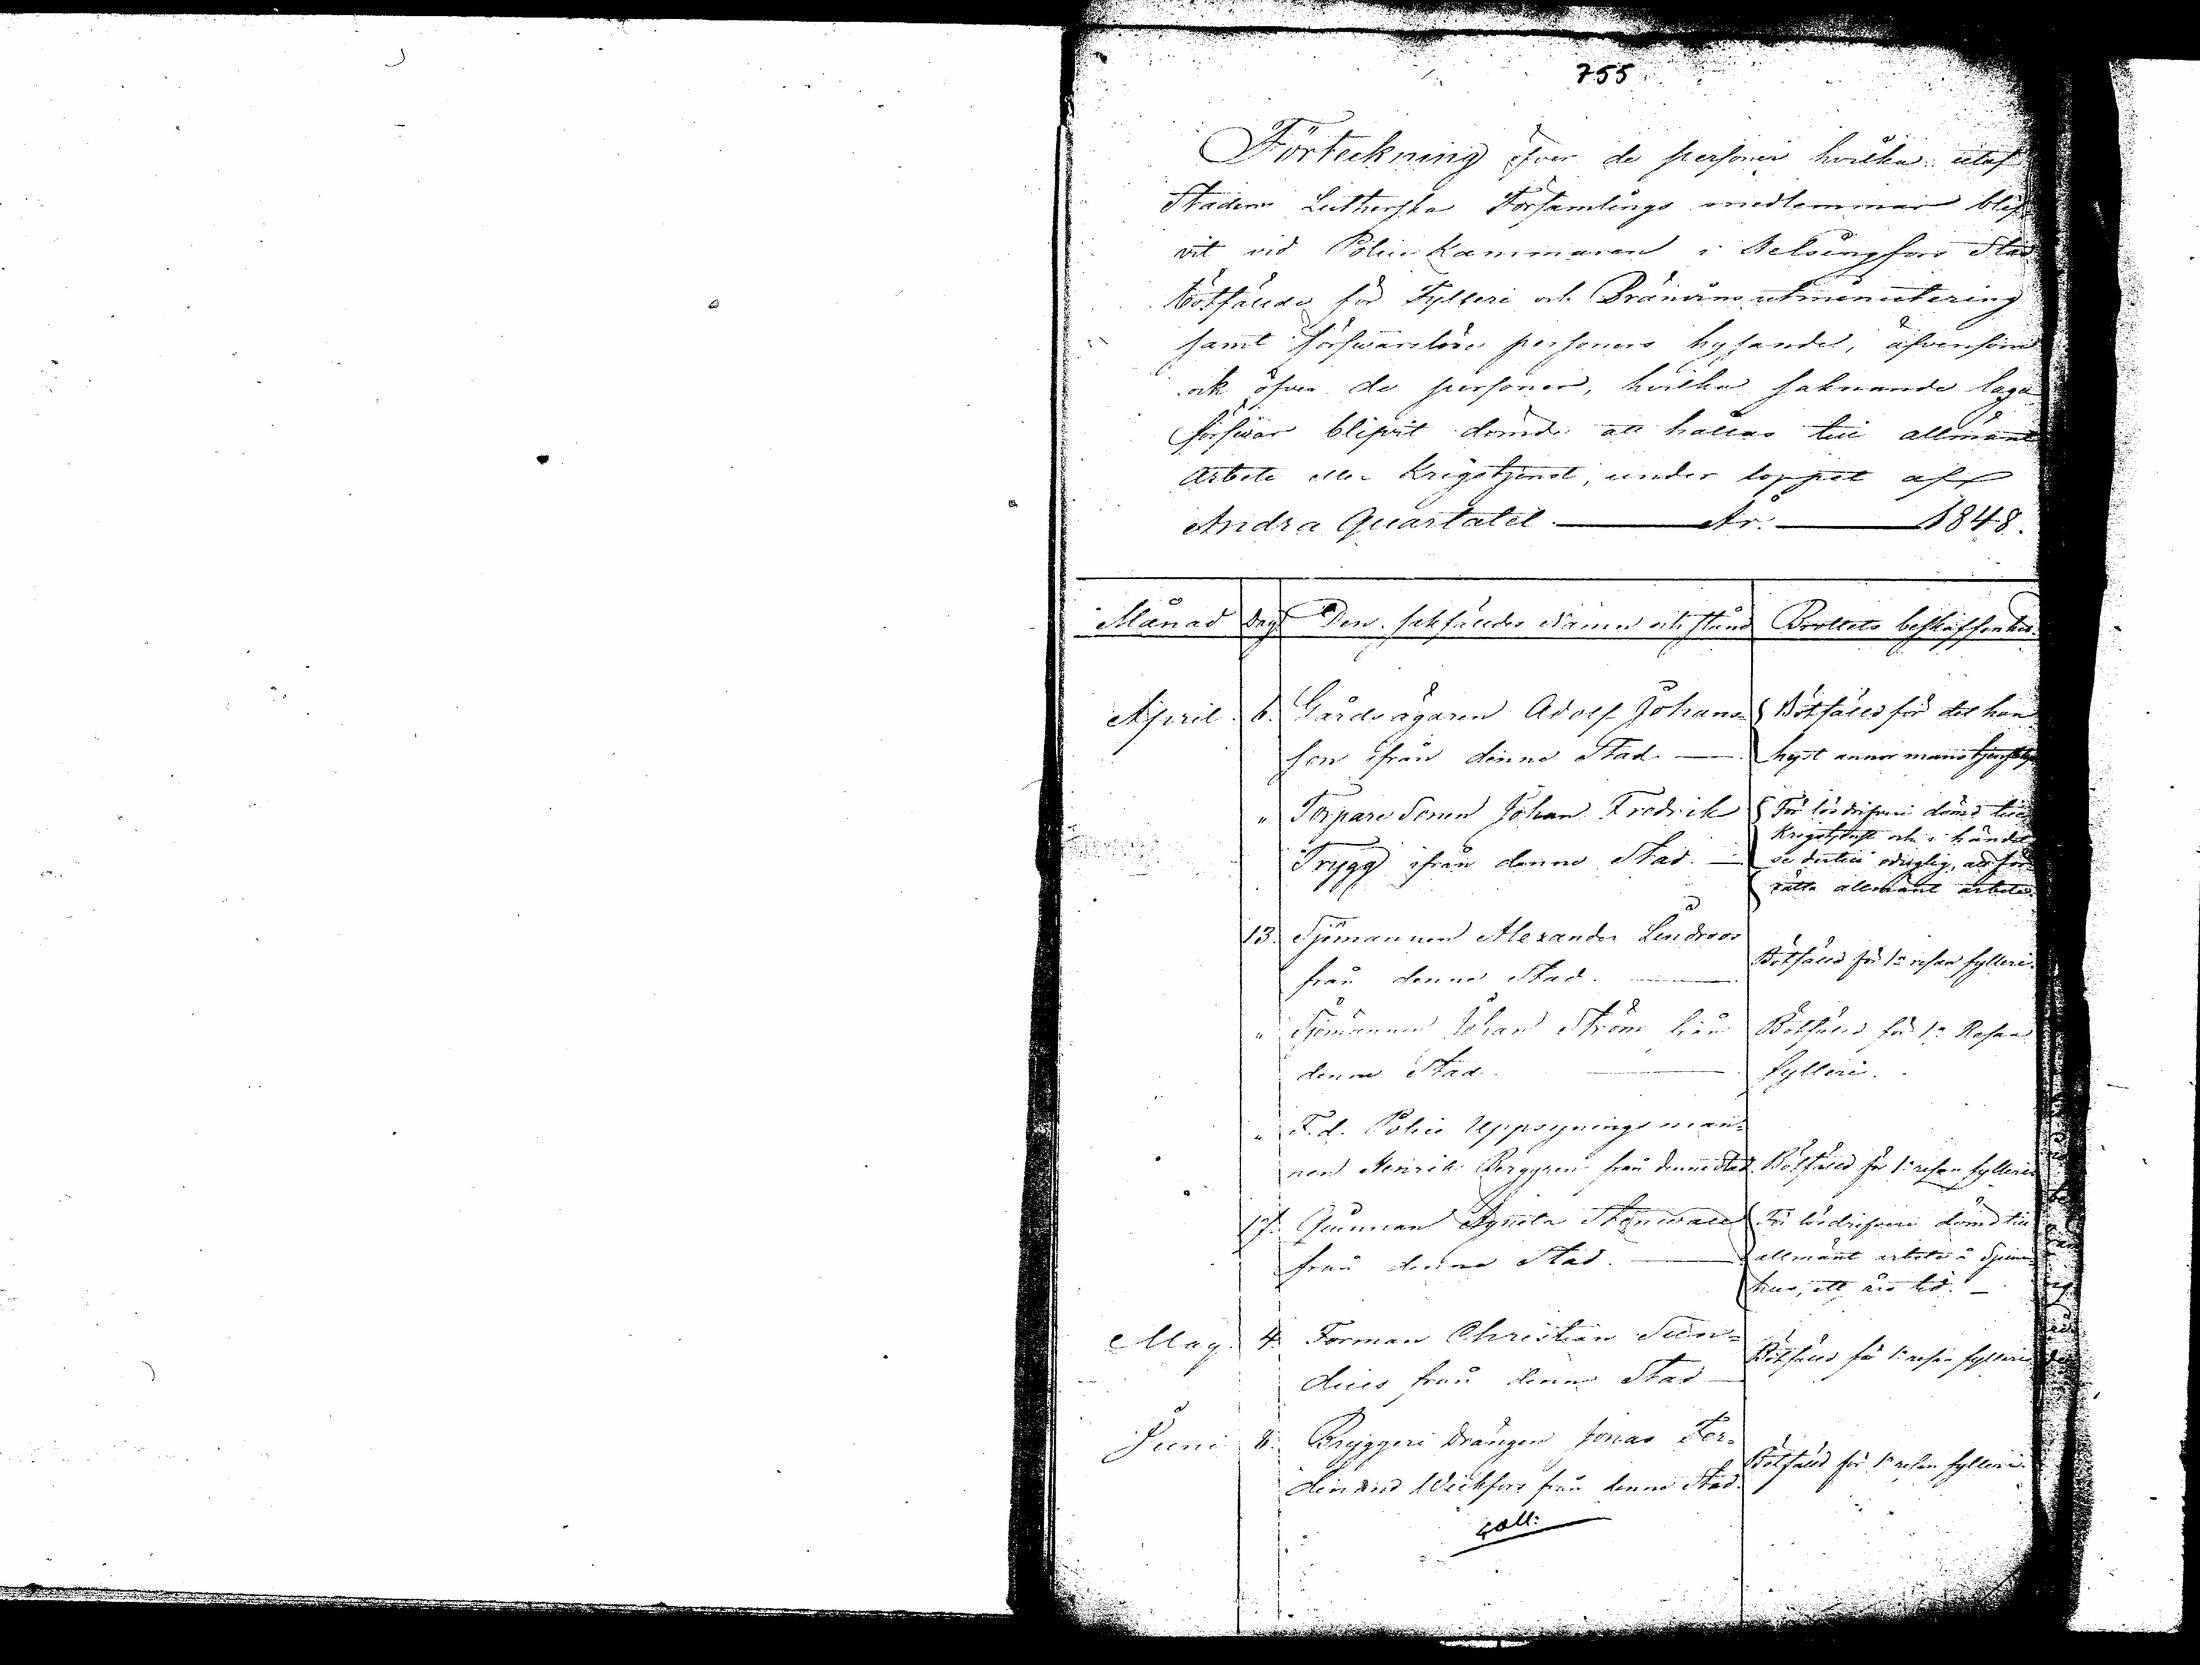 755
Förteckning öfver de personer hvilka utaf
Stadens Lutherska Församlings medlemmar blif
vit vid Police Kammaren i Helsingfors Stad
bötfällde för Fylleri och Bränvins utminutering
samt förswarslöse personers hysande, äfvensom
ock öfver de personer, hvilka saknande laga
förswar blifvit dömde att hållas till allmänt
Arbete eller Krigstjenst, under loppet af
Andra Quartalet År. 1848.
Månad Dag Den sakfälldes Namn och stånd Brottets beskaffenhet
April 6. Gårdsägaren Adolf Johans= Bötfälld för det han
son ifrån denna Stad. hyst annor mans
" Torpare Sonen Johan Fredrik För lösdrifveri dömd till
Krigstjenst och i händel
Trygg ifrån denna Stad. se dertill oduglig, att för
rätta allmänt arbete.
13. Sjömannen Alexander Lindroos
från denna Stad. Bötfälld för 1a resan fylleri.
" Sjömannen Johan Ström från Bötfälld för 1a Resan
denna Stad. fylleri.
" F.d. Police Uppsynings man=
nen Henrik Berggren från denna Stad. Bötfälld för 1a resan fylleri
17. Qvinnan Agneta Stenwall För lösdrifveri dömd till
från denna Stad. allmänt arbete å Spinn
hus, ett års tid.
May. 4. Forman Christian Sun=
dius från denna Stad Bötfälld för 1a resan fylleri
Juni 8. Bryggeri Drängen Jonas Fer=
dinand Weckfors från denna Stad. Bötfälld för 1a resan fylleri.
Coll: